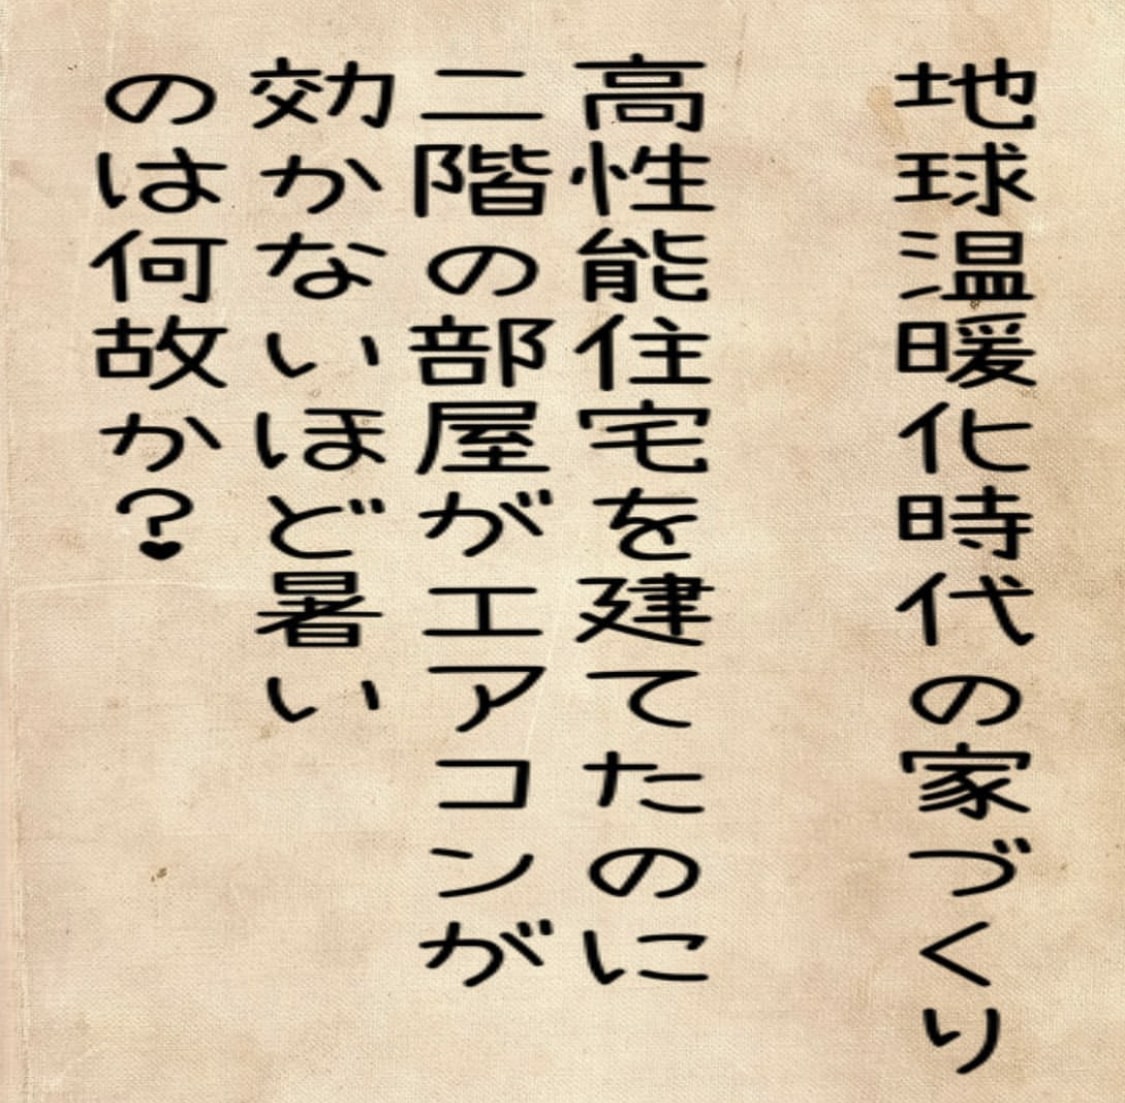 地球温暖化時代の家づくり
高性能住宅を建てたのに
二階の部屋がエアコンが
効かないほど暑い
のは何故か?